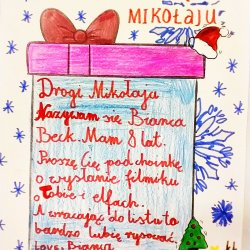 MIKOŁAJU
Drogi Mikołaju
Nazywam się Bianca
Beck. Mam 8 lat.
Proszę Cię pod choinkę
o wysłanie filmiku
o Tobie i elfach.
A wracając do listu to
bardzo lubię rysować
Love, Bianca